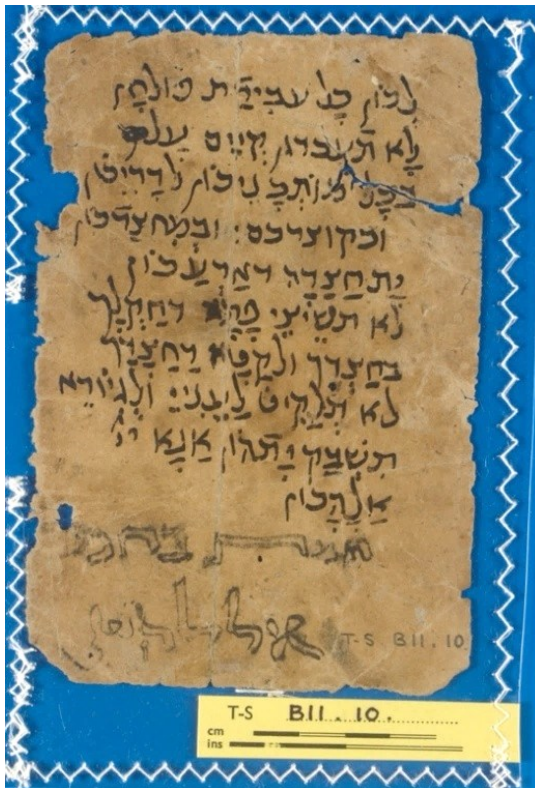 לכון כל עבידת פולחן
לא תעבדון קיים עלם
בכל מותבניכון לדריכון
ובקוצרכם: ובמחצדכון
ית חצדה דארעכון
לא תשיצי דחקלך
בחצדך ולקטא דחצדך
לא תלקיט לעניי ולגיורא
תשבק יתהון אנא יי
אלהכון
T-S B11.10
T-S B11.10.
cm
ins